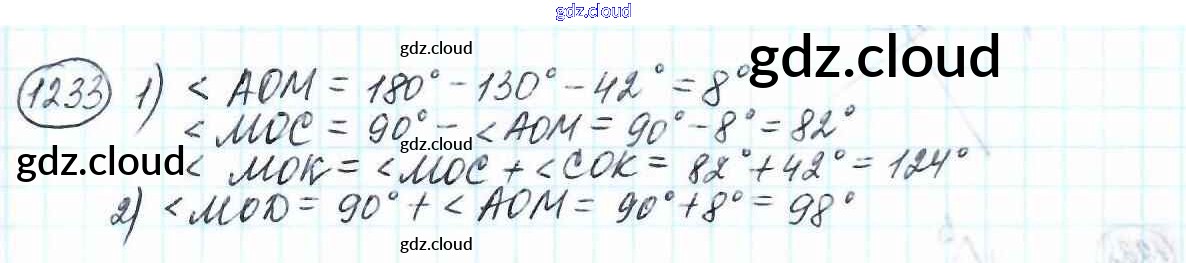 gdz.cloud
gdz.cloud
gdz.cloud
1233 1) < AOM = 180° - 130° - 42° = 8°
< MOC = 90° - < AOM = 90° - 8° = 82°
gdz.cloud
gdz.cloud
< MOK = < MOC + < COK = 82° + 42° = 124°
gdz.cloud
2) < MOD = 90° + < AOM = 90° + 8° = 98°
gdz.cloud